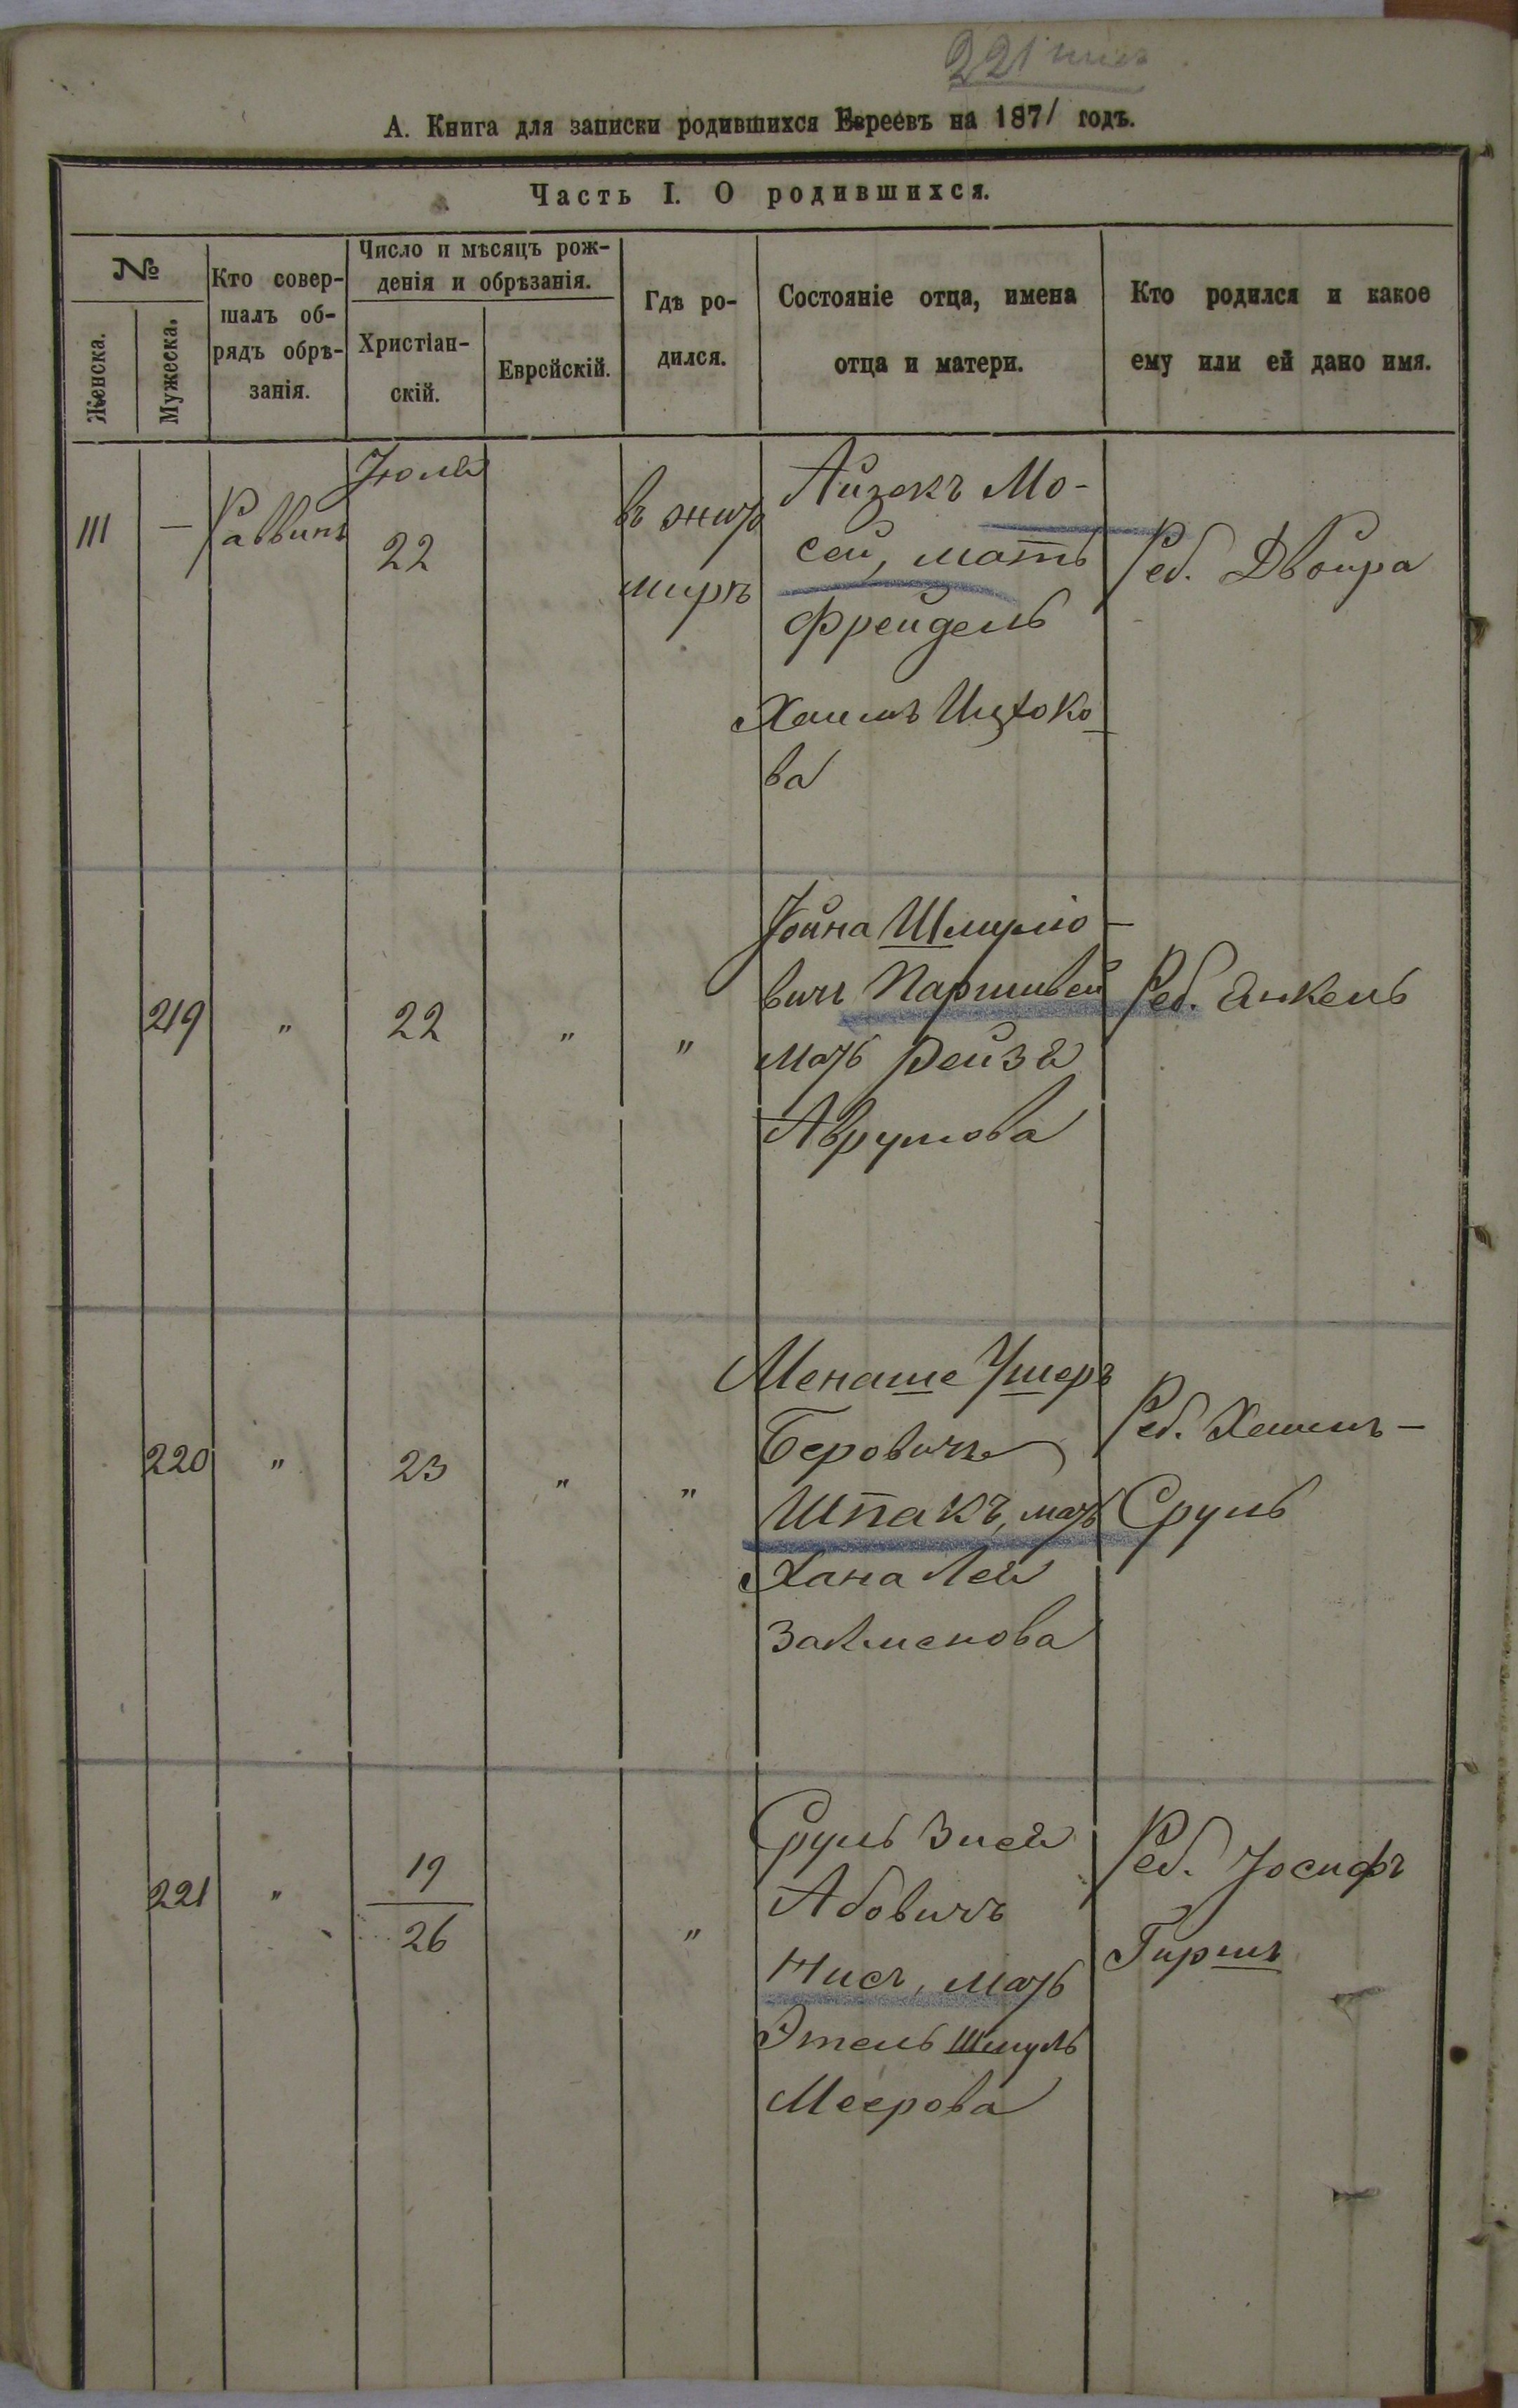 221 
А. Книга для записки родившихся Евреевъ на 1871 годъ.
Часть I. О родившихся.
№
Женска.
Мужеска.
Кто совер-
шалъ об-
рядъ обрѣ-
занія.
Число и мѣсяцъ рож-
денія и обрѣзанія.
Христіан-
скій.
Еврейскій.
Гдѣ ро-
дился.
Состояніе отца, имена
отца и матери.
Кто родился и какое
ему или ей дано имя.
111
—
Раввинъ
Іюля
22
въ Жито
миръ
Айзекъ Мо-
сей, мать
Фрейдель
Хаимъ Ицхоко
ва
Реб. Двойра
219
"
22
"
"
Іойна Шмуліо-
вичъ Паршивей
мать Рейзя
Аврумова
Реб. Янкель
220
"
23
"
"
Менаше Ушеръ
Беровичъ
Шпакъ, мать
Хана Лея
Залменова
Реб. Хаимъ-
Сруль
221
"
19
26
"
Сруль Зися
Абовичъ
Нисъ, мать
Этель Шмуль
Меерова
Реб. Іосифъ
Гиршъ